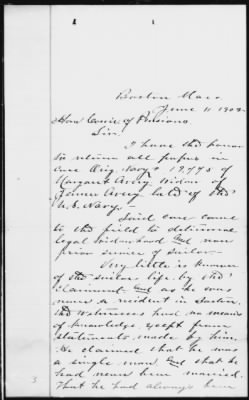 Boston Mass
June 11 1902
Hon Com'r of Pensions
Sir:
I have the honor
to return all papers in
case Orig No 17,775 of
Margaret Avery widow of
James Avery late of the
U.S. Navy.
Said case came
to the field to determine
legal widowhood and non
prior service of sailor
Very little is known
of the sailor's life by the
claimant and as he was
never a resident in
the witnesses had no means
of knowledge except from
statements made by him.
He claimed that he was
a single man and that he
had never been married.
That he had always been
3